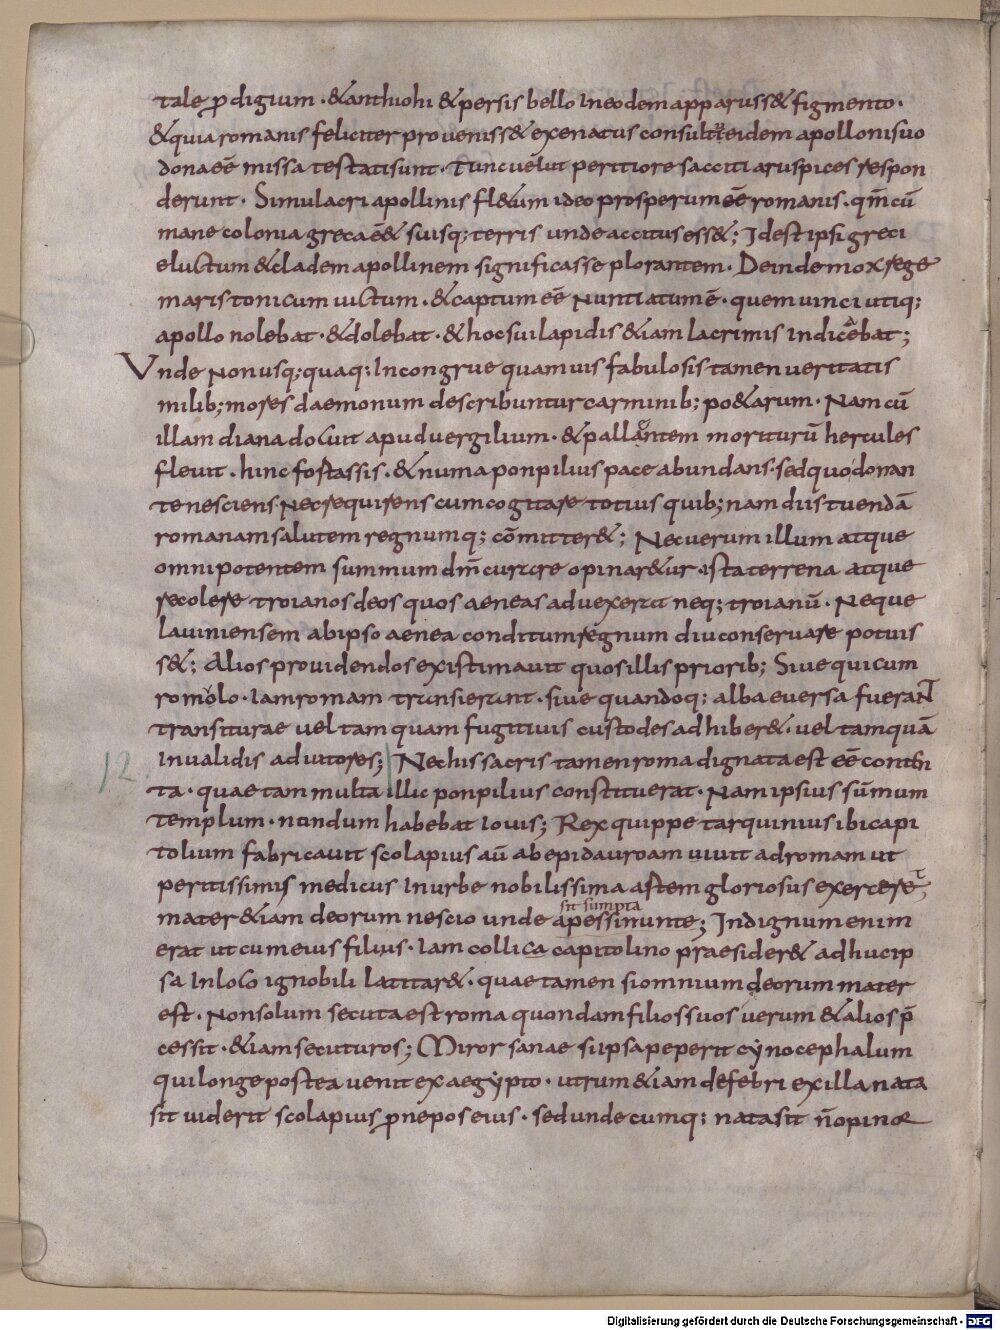 tale ꝓdigium · &anthiohi & persis bello Ineodem apparuss& figmento ·
& quia romanis feliciter prouenisse& exenatus consultu eidem apollonisuo
dona eē missa testatisunt · Tunc uelut peritiores acciti aruspices respon
derunt · Simulacri apollinis fl&um ideo prosperum eē romanis · qm̄ cū
mane colonia greca eē& suisq; terris unde accitus ess&; Idest ipsi greci
eluctum & cladem apollinem significasse plorantem · Deinde mox rege
maristonicum uictum · & captum eē Nuntiatum ē · quem uinci utiq;
apollo nolebat · & dolebat · & hoc sui lapidis &iam lacrimis Indicabat;
Vnde Non usq; quaq; Incongrue quamuis fabulosis tamen ueritatis
milib; mores daemonum describuntur carminib; po&arum · Nam cū
illam diana doluit apud uergilium · & pallantem moriturū hercules
fleuit · hinc fostassis · & numa ponpilius pace abundans · sed quo donan
te nesciens · Nec requirens cum cogitare totius quib; nam diis tuendā
romanam salutem regnumq; cōmitter&; Nec uerum illum atque
omnipotentem summum dm̄ curare opinar&ur · ista terrena atque
recolere troianos deos quos aeneas aduexerat neq; troianū · Neque
lauiniensem abipso aenea conditum regnum diu conseruare potuis
s&; Alios prouidendos existimauit quos illis priorib; Siue qui cum
romolo · Iam romam transierunt · siue quandoq; alba euersa fueraNT
transiturae uel tam quam fugitiuis custodes adhiber& · uel tamquā
Inualidis adiutores; Nec his sacris tamen roma dignata est eē conten
12
ta · quae tam multa illic ponpilius constituerat · Nam ipsius sūmum
templum · nundum habebat Iouis; Rex quippe tarquinius ibi capi
tolium fabricauit scolapius aū ab epidauro am uiuit ad romam ut
peritissimis medicus Inurbe nobilissima astem gloriosus exerceret;
sit sumpta
mater &iam deorum nescio unde apessinunte; Indignum enim
erat ut cum eius filius · Iam collica capitolino praesider& adhuc ip
sa Inloco ignobili latitar& · quae tamen si omnium deorum mater
est · Non solum secuta est roma quondam filios suos uerum & alios p̄
cessit · &iam secuturos; Miror sanae si ipsa peperit cynocephalum
qui longe postea uenit ex aegypto · utrum &iam defebri ex illa nata
sit uiderit scolapius ꝓnepos eius · sed unde cumq; nata sit n̄ opinor
Digitalisierung gefördert durch die Deutsche Forschungsgemeinschaft - DFG